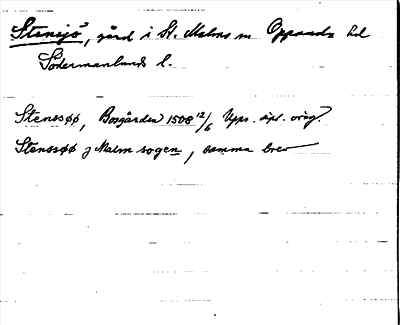 Stensjö, gård i St. Malms sn Oppunda hd
Södermanlands l.
Stenssøø, Bosgården 1508 12/6 Ups. dipl. orig.
Stenssøø j Malm sogen, samma brev